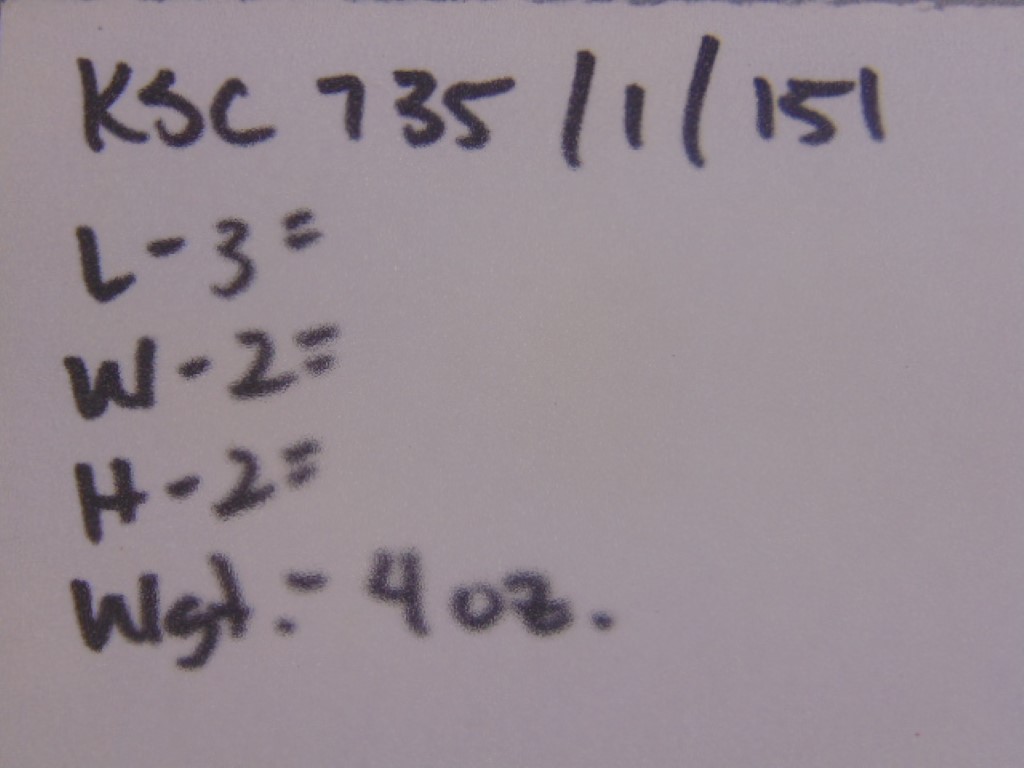 KSC 735/1/151
L-3=
W-2=
H-2=
Wgt.- 4 oz.